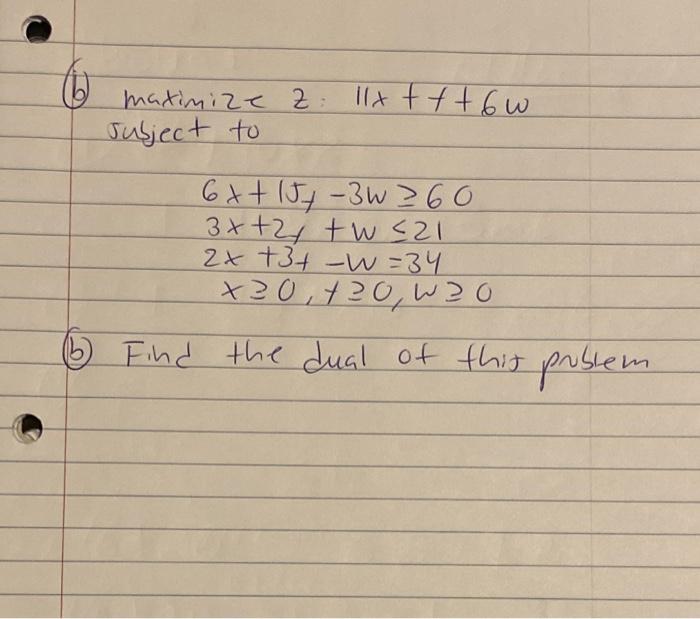 (b) maximize z: 11x + y + 6w
subject to
6x + 15y - 3w ≥ 60
3x + 2y + w ≤ 21
2x + 3y - w = 34
x ≥ 0, y ≥ 0, w ≥ 0
(b) Find the dual of this problem